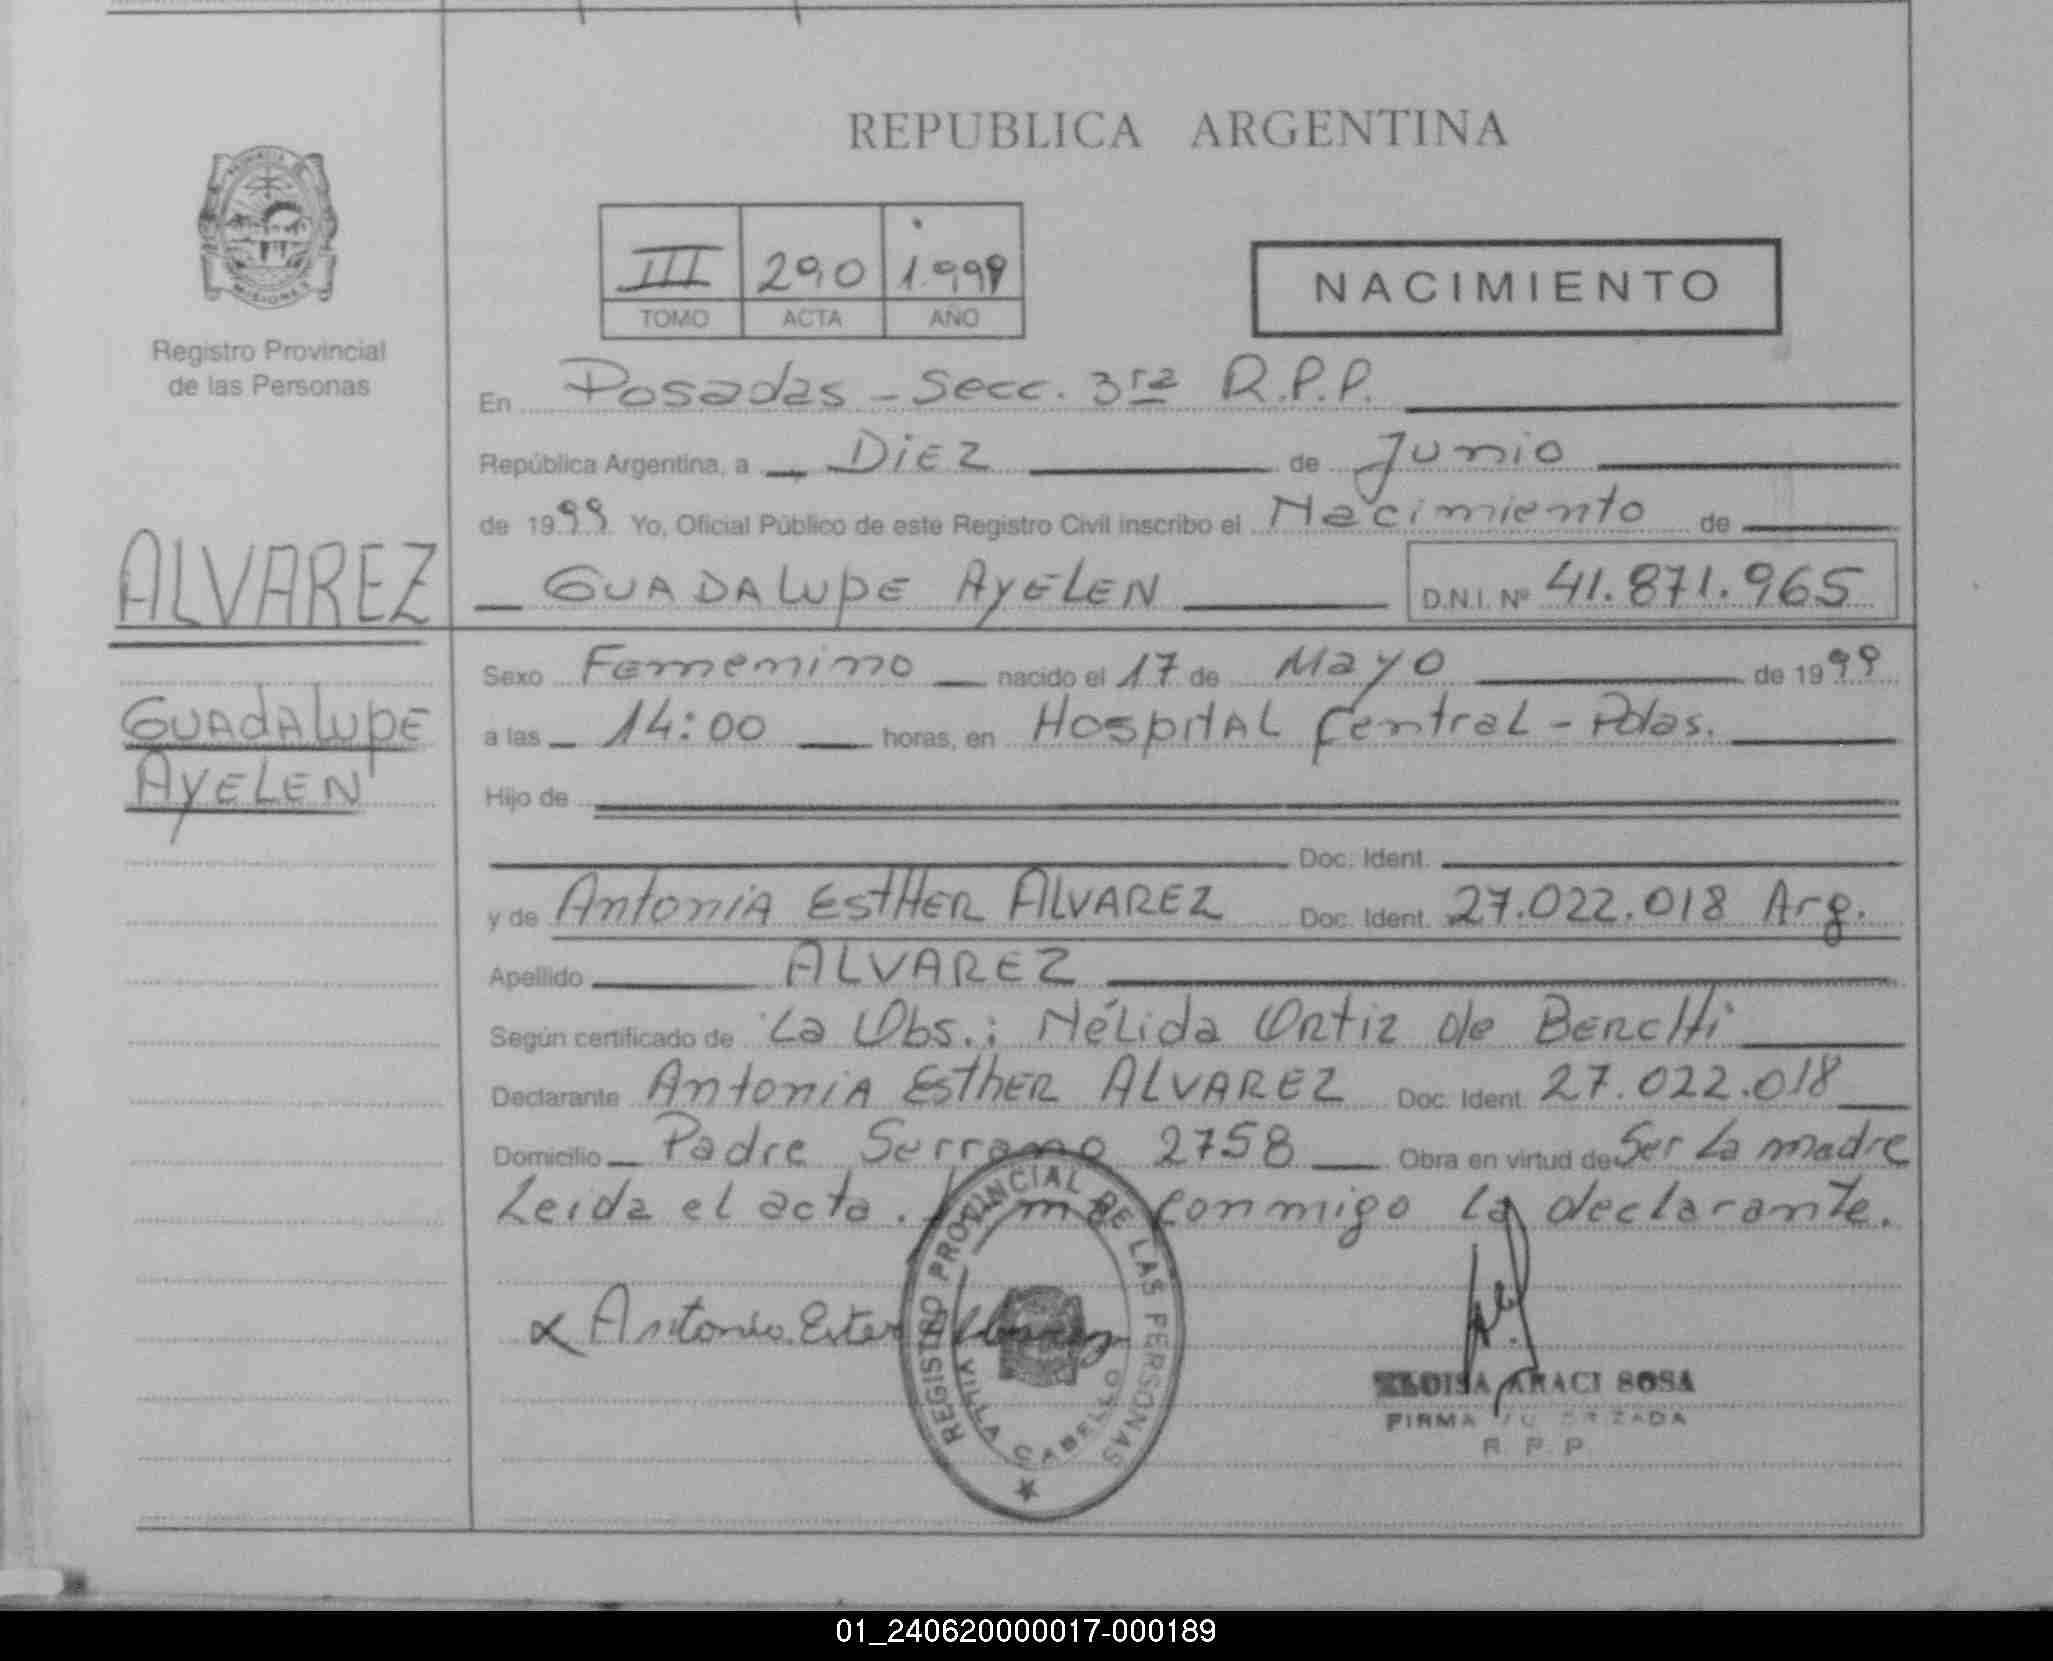 REPUBLICA ARGENTINA
PROVINCIA DE
MISIONES
III 290 1.999
TOMO ACTA AÑO
NACIMIENTO
Registro Provincial
de las Personas
En Posadas - Secc. 3ra R.P.P.
República Argentina, a Diez de Junio
de 1999 Yo, Oficial Público de este Registro Civil inscribo el Nacimiento de
ALVAREZ
GUADALUPE AYELEN D.N.I. Nº 41.871.965
Sexo Femenino nacido el 17 de Mayo de 1999
GUADALUPE
a las 14:00 horas, en Hospital Central - Pdas.
AYELEN
Hijo de
Doc. Ident.
y de Antonia Esther ALVAREZ Doc. Ident. 27.022.018 Arg.
Apellido ALVAREZ
Según certificado de La Obs.: Nélida Ortiz de Berchi
Declarante Antonia Esther ALVAREZ Doc. Ident. 27.022.018
Domicilio Padre Serrano 2758 Obra en virtud de Ser La madre
Leida el acta. conmigo la declarante.
Antonia Ester Alvarez
REGISTRO PROVINCIAL DE LAS PERSONAS
VILLA CABELLO
ELOISA ARACI SOSA
FIRMA AUTORIZADA
R. P. P.
01_240620000017-000189